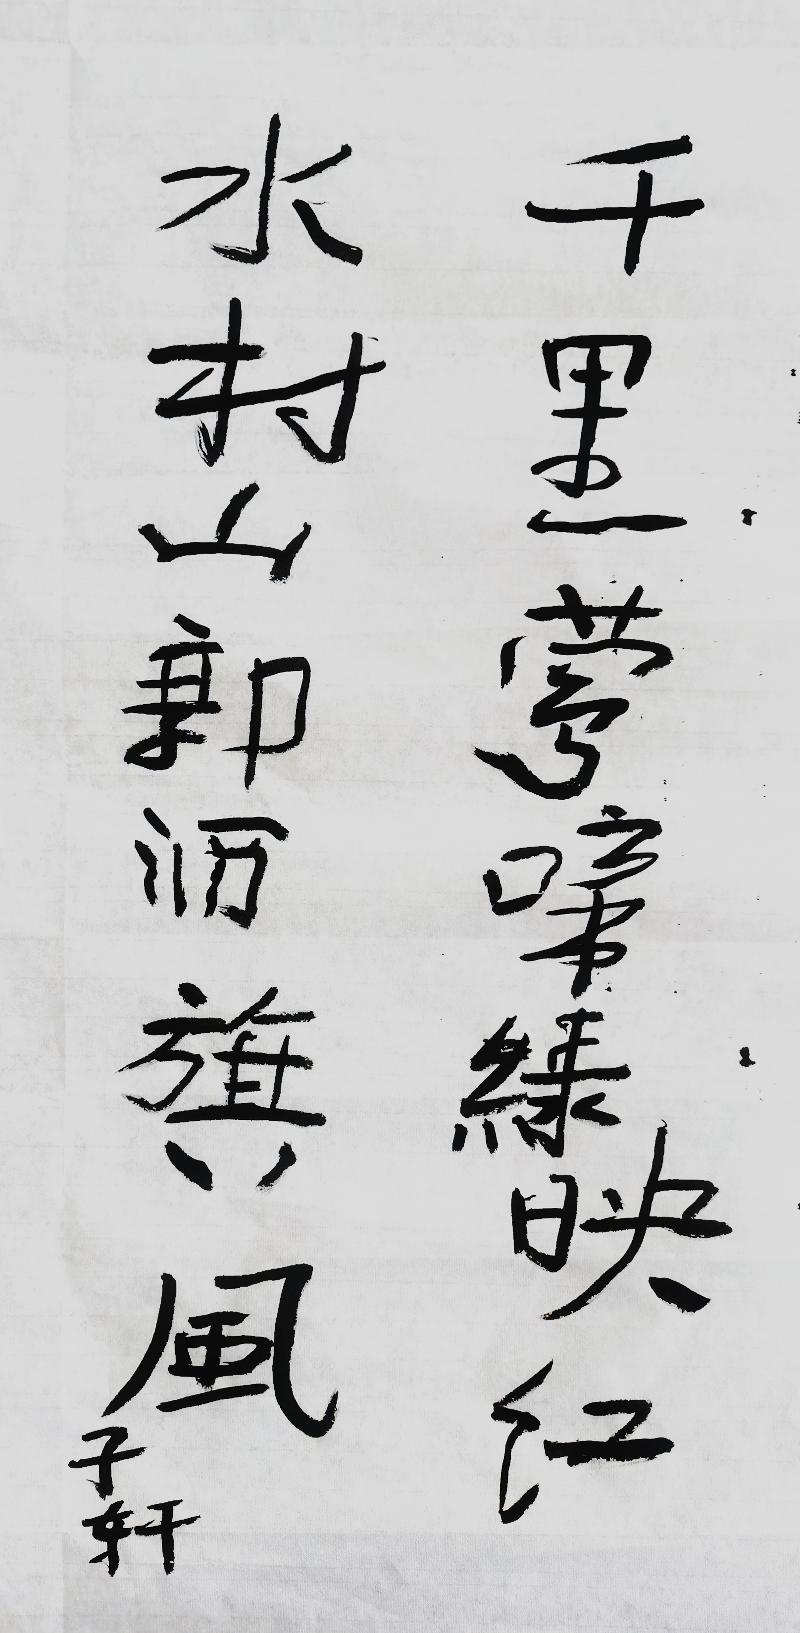 千里鶯啼綠映红
水村山郭酒旗風
子轩